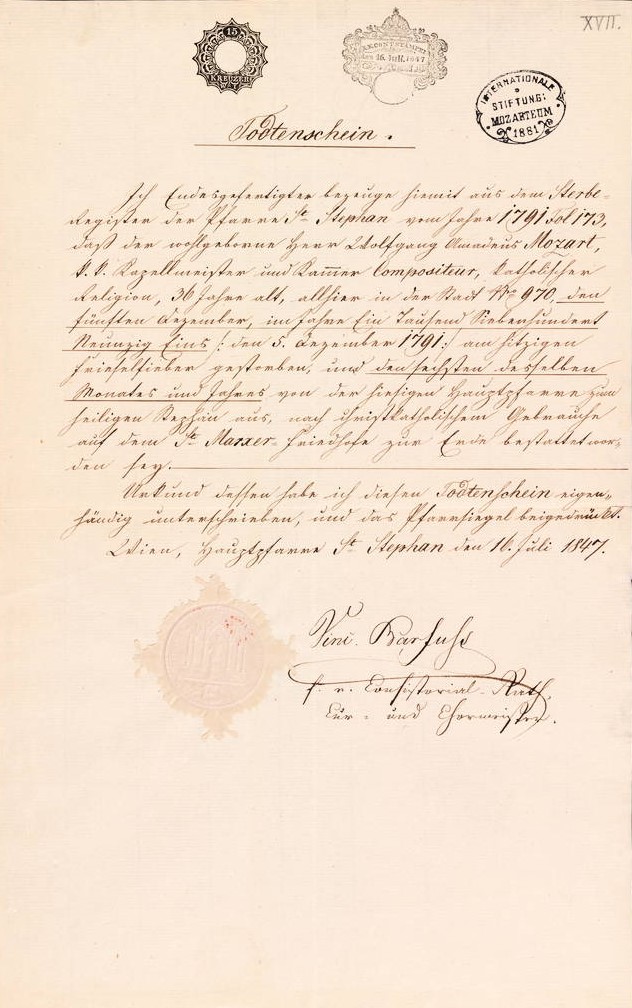 XVII.
15
KREUZER
INTERNATIONALE
STIFTUNG:
MOZARTEUM
1881
Todtenschein.
Ich Endesgefertigter bezeuge hiemit aus dem Sterbe-
Register der Pfarre St. Stephan vom Jahre 1791 Fol 173,
daß der wohlgeborne Herr Wolfgang Amadeus Mozart,
k. k. Kapellmeister und Kam̅er Compositeur, katholischer
Religion, 36 Jahre alt, allhier in der Stadt Nro 970, den
fünften Dezember, im Jahre Ein Tausend Siebenhundert
Neunzig Eins /: den 5. Dezember 1791 :/ am hitzigen
Frieselfieber gestorben, und den sechsten desselben
Monates und Jahres von der hiesigen Hauptpfarre zum
heiligen Stephan aus, nach christkatholischem Gebrauche
auf dem St. Marxer-Friedhofe zur Erde bestattet wor-
den sey.
Urkund dessen habe ich diesen Todtenschein eigen-
händig unterschrieben, und das Pfarrsiegel beigedrückt.
Wien, Hauptpfarre St. Stephan den 16. Juli 1847.
f. e. Consistorial-Rath,
Cur- und Chormeister.